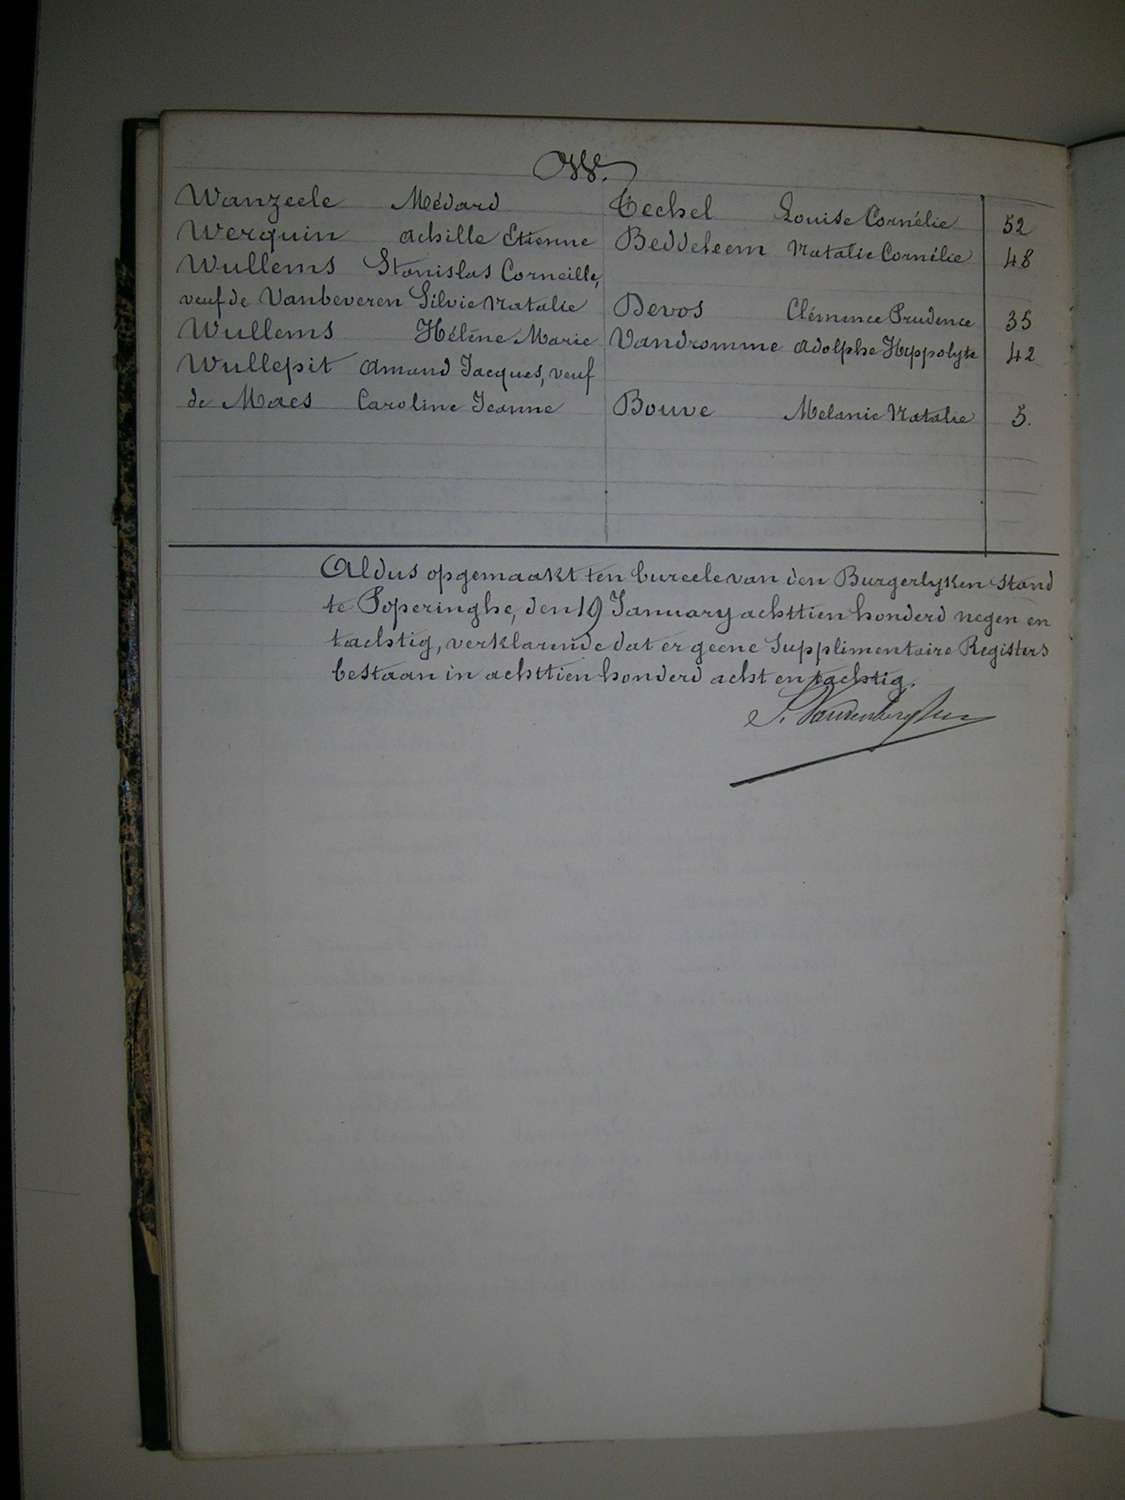 W.
Wanzeele Médard Techel Louise Cornélie 52
Werquin Achille Etienne Beddeleem Natalie Cornélie 48
Wullems Stanislas Corneille,
veuf de Vanbeveren Silvie Natalie Devos Clémence Prudence 35
Wullems Hélène Marie Vandromme Adolphe Hyppolyte 42
Wullepit Amand Jacques, veuf
de Maes Caroline Jeanne Bouve Melanie Natalie 5.
Aldus opgemaakt ten bureele van den Burgerlyken Stand
te Poperinghe, den 19 January achttien honderd negen en
tachtig, verklarende dat er geene Supplimentaire Registers
bestaan in achttien honderd acht en tachtig.
Vandenberghe